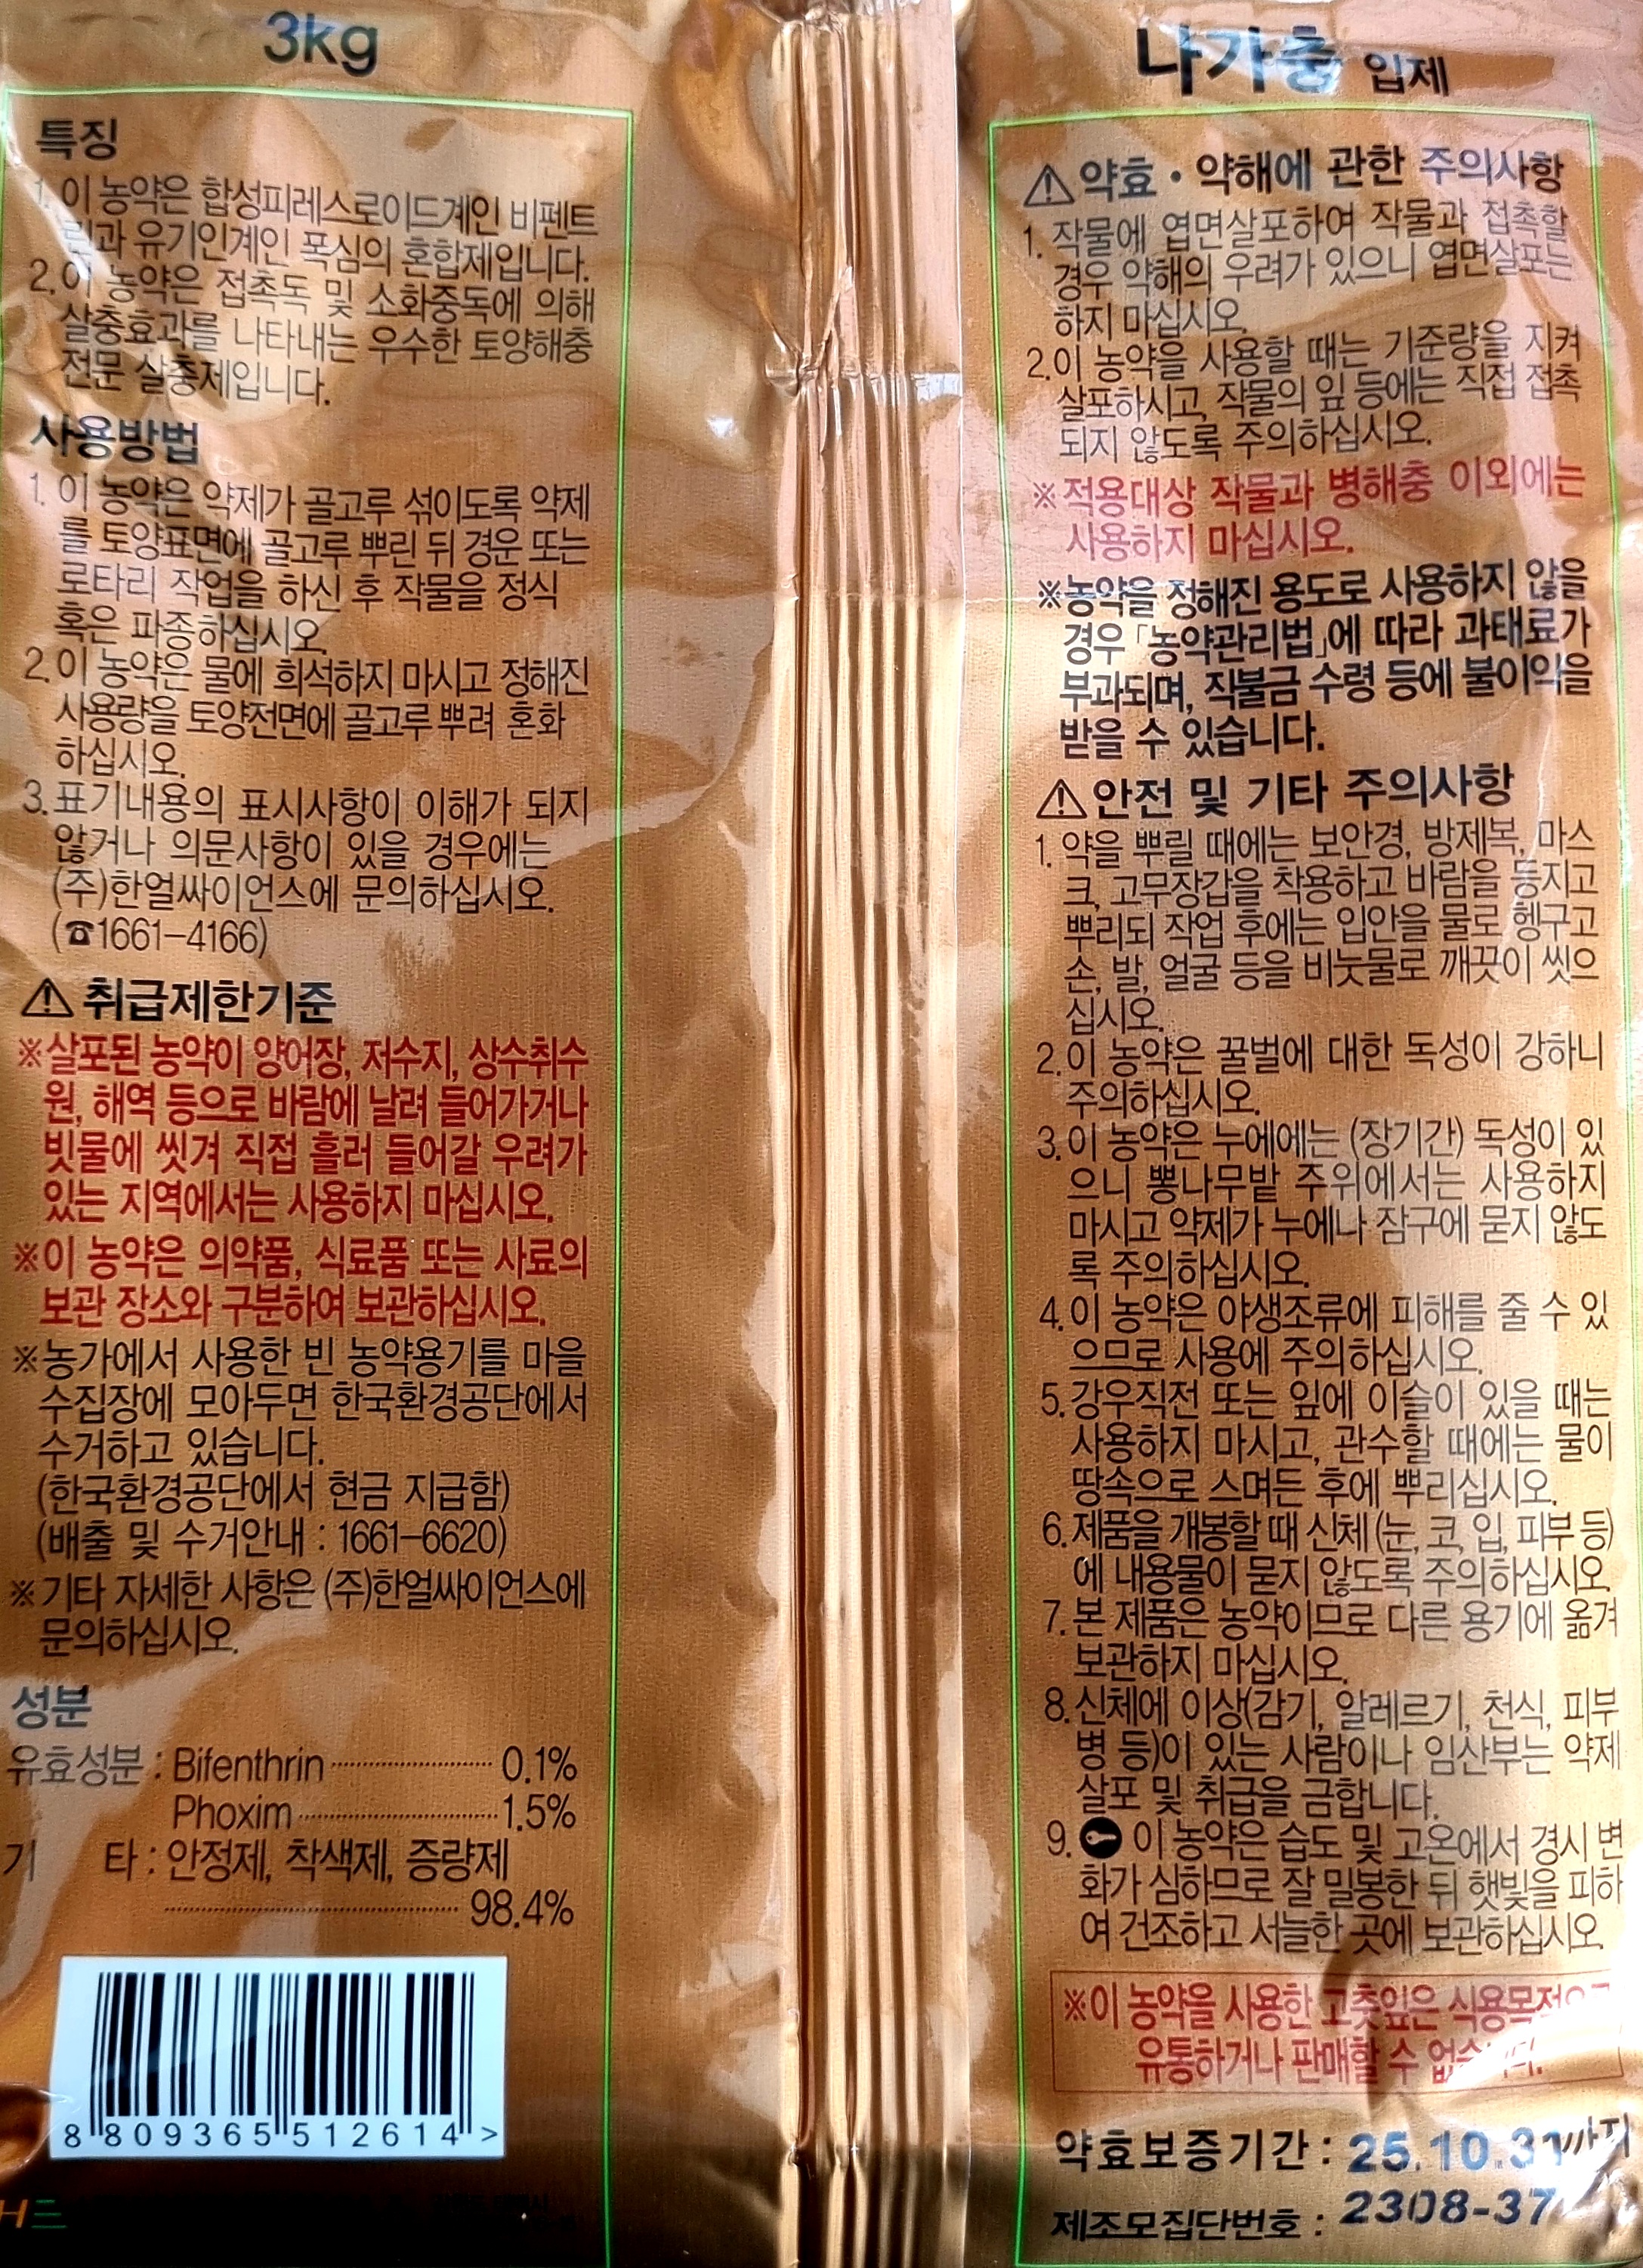 3kg
특징
1. 이 농약은 합성피레스로이드계인 비펜트
린과 유기인계인 폭심의 혼합제입니다.
2. 이 농약은 접촉독 및 소화중독에 의해
살충효과를 나타내는 우수한 토양해충
전문 살충제입니다.
사용방법
1. 이 농약은 약제가 골고루 섞이도록 약제
를 토양표면에 골고루 뿌린 뒤 경운 또는
로타리 작업을 하신 후 작물을 정식
혹은 파종하십시오.
2. 이 농약은 물에 희석하지 마시고 정해진
사용량을 토양전면에 골고루 뿌려 혼화
하십시오.
3. 표기내용의 표시사항이 이해가 되지
않거나 의문사항이 있을 경우에는
(주)한얼싸이언스에 문의하십시오.
(☎1661-4166)
⚠ 취급제한기준
※살포된 농약이 양어장, 저수지, 상수취수
원, 해역 등으로 바람에 날려 들어가거나
빗물에 씻겨 직접 흘러 들어갈 우려가
있는 지역에서는 사용하지 마십시오.
※이 농약은 의약품, 식료품 또는 사료의
보관 장소와 구분하여 보관하십시오.
※농가에서 사용한 빈 농약용기를 마을
수집장에 모아두면 한국환경공단에서
수거하고 있습니다.
(한국환경공단에서 현금 지급함)
(배출 및 수거안내 : 1661-6620)
※기타 자세한 사항은 (주)한얼싸이언스에
문의하십시오.
성분
유효성분 : Bifenthrin ........................ 0.1%
Phoxim ........................ 1.5%
기 타 : 안정제, 착색제, 증량제
........................ 98.4%
8 809365 512614 >
나가충 입제
⚠약효·약해에 관한 주의사항
1. 작물에 엽면살포하여 작물과 접촉할
경우 약해의 우려가 있으니 엽면살포는
하지 마십시오.
2. 이 농약을 사용할 때는 기준량을 지켜
살포하시고, 작물의 잎 등에는 직접 접촉
되지 않도록 주의하십시오.
※적용대상 작물과 병해충 이외에는
사용하지 마십시오.
※농약을 정해진 용도로 사용하지 않을
경우 「농약관리법」에 따라 과태료가
부과되며, 직불금 수령 등에 불이익을
받을 수 있습니다.
⚠안전 및 기타 주의사항
1. 약을 뿌릴 때에는 보안경, 방제복, 마스
크, 고무장갑을 착용하고 바람을 등지고
뿌리되 작업 후에는 입안을 물로 헹구고
손, 발, 얼굴 등을 비눗물로 깨끗이 씻으
십시오.
2. 이 농약은 꿀벌에 대한 독성이 강하니
주의하십시오.
3. 이 농약은 누에에는 (장기간) 독성이 있
으니 뽕나무밭 주위에서는 사용하지
마시고 약제가 누에나 잠구에 묻지 않도
록 주의하십시오.
4. 이 농약은 야생조류에 피해를 줄 수 있
으므로 사용에 주의하십시오.
5. 강우직전 또는 잎에 이슬이 있을 때는
사용하지 마시고, 관수할 때에는 물이
땅속으로 스며든 후에 뿌리십시오.
6. 제품을 개봉할 때 신체 (눈, 코, 입, 피부 등)
에 내용물이 묻지 않도록 주의하십시오.
7. 본 제품은 농약이므로 다른 용기에 옮겨
보관하지 마십시오.
8. 신체에 이상(감기, 알레르기, 천식, 피부
병 등)이 있는 사람이나 임산부는 약제
살포 및 취급을 금합니다.
9. 이 농약은 습도 및 고온에서 경시 변
화가 심하므로 잘 밀봉한 뒤 햇빛을 피하
여 건조하고 서늘한 곳에 보관하십시오.
※이 농약을 사용한 고춧잎은 식용목적으로
유통하거나 판매할 수 없습니다.
약효보증기간 : 25.10.31까지
제조모집단번호 : 2308-37